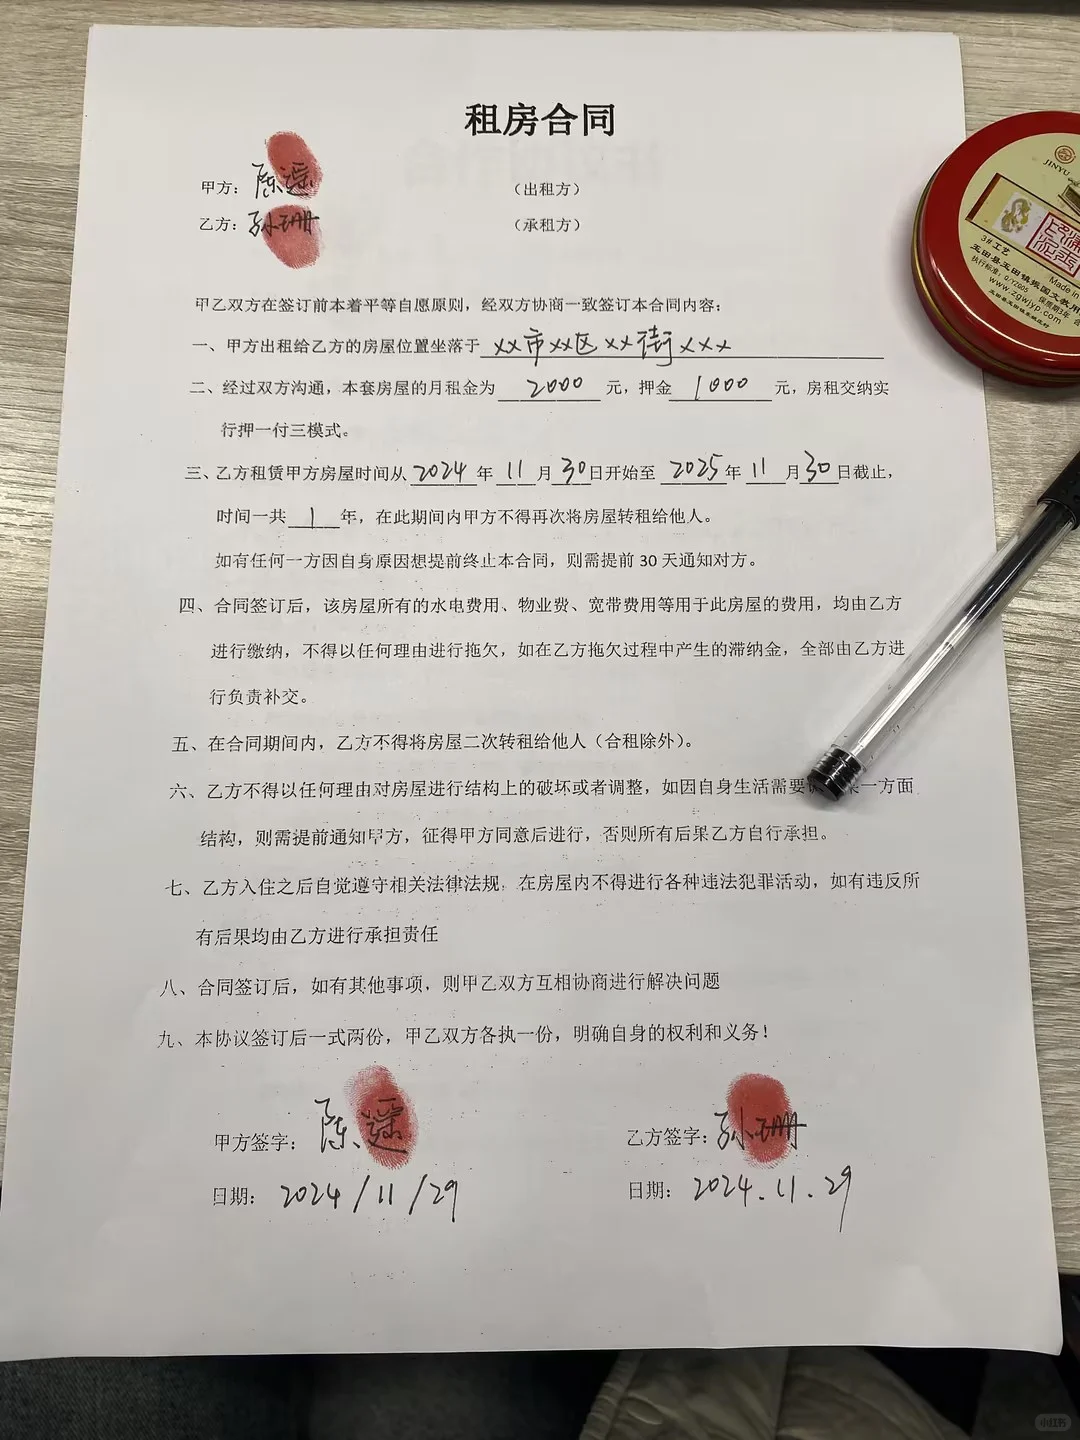 租房合同
甲方：陈遥 （出租方）
乙方：孙珊 （承租方）
甲乙双方在签订前本着平等自愿原则，经双方协商一致签订本合同内容：
一、甲方出租给乙方的房屋位置坐落于xx市xx区xx街xxx
二、经过双方沟通，本套房屋的月租金为 2000 元，押金 1000 元，房租交纳实
行押一付三模式。
三、乙方租赁甲方房屋时间从 2024 年 11 月 30 日开始至 2025 年 11 月 30 日截止，
时间一共 1 年，在此期间内甲方不得再次将房屋转租给他人。
如有任何一方因自身原因想提前终止本合同，则需提前 30 天通知对方。
四、合同签订后，该房屋所有的水电费用、物业费、宽带费用等用于此房屋的费用，均由乙方
进行缴纳，不得以任何理由进行拖欠，如在乙方拖欠过程中产生的滞纳金，全部由乙方进
行负责补交。
五、在合同期间内，乙方不得将房屋二次转租给他人（合租除外）。
六、乙方不得以任何理由对房屋进行结构上的破坏或者调整，如因自身生活需要 一方面
结构，则需提前通知甲方，征得甲方同意后进行，否则所有后果乙方自行承担。
七、乙方入住之后自觉遵守相关法律法规，在房屋内不得进行各种违法犯罪活动，如有违反所
有后果均由乙方进行承担责任
八、合同签订后，如有其他事项，则甲乙双方互相协商进行解决问题
九、本协议签订后一式两份，甲乙双方各执一份，明确自身的权利和义务！
甲方签字：陈遥 乙方签字：孙珊
日期： 2024/11/29 日期： 2024.11.29
JINYU
3#工艺
玉田县玉田镇振国文教用
执行标准：G/YZ005 保质期3年
www.zgwjyp.com
Made in
小红书